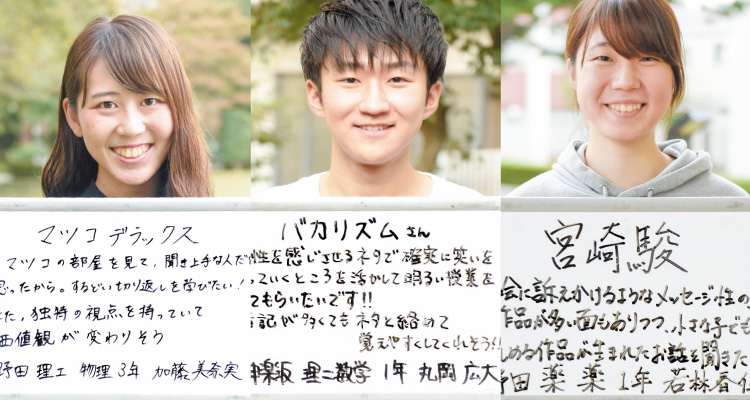 マツコ デラックス
マツコの部屋を見て、聞き上手な人だ
思ったから。するどい切り返しを学びたい！
た、独特の視点を持っていて
価値観が変わりそう
野田 理工 物理3年 加藤美奈実
バカリズムさん
性を感じさせるネタで確実に笑いを
っていくところを活かして明るい授業を
てもらいたいです!!
記が多くてもネタと絡めて
覚えやすくしてくれそう!!
楽坂 理二数学 1年 丸岡 広大
宮崎駿
会に訴えかけるようなメッセージ性の
作品が多い面もありつつ、小さな子ども
しめる作品が生まれたお話を聞きた
田 薬 薬 1年 若林春